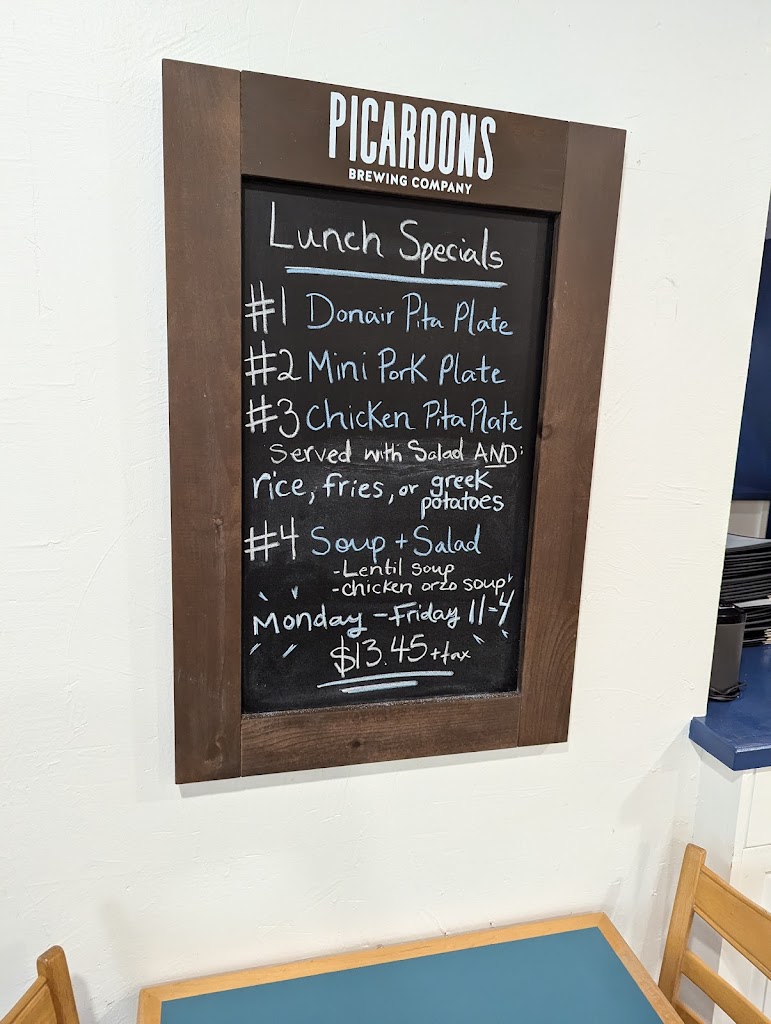 PICAROONS
BREWING COMPANY
Lunch Specials
#1 Donair Pita Plate
#2 Mini Pork Plate
#3 Chicken Pita Plate
Served with Salad AND:
rice, fries, or greek
potatoes
#4 Soup + Salad
-Lentil soup
-chicken orzo soup
Monday - Friday 11-4
$13.45 + tax